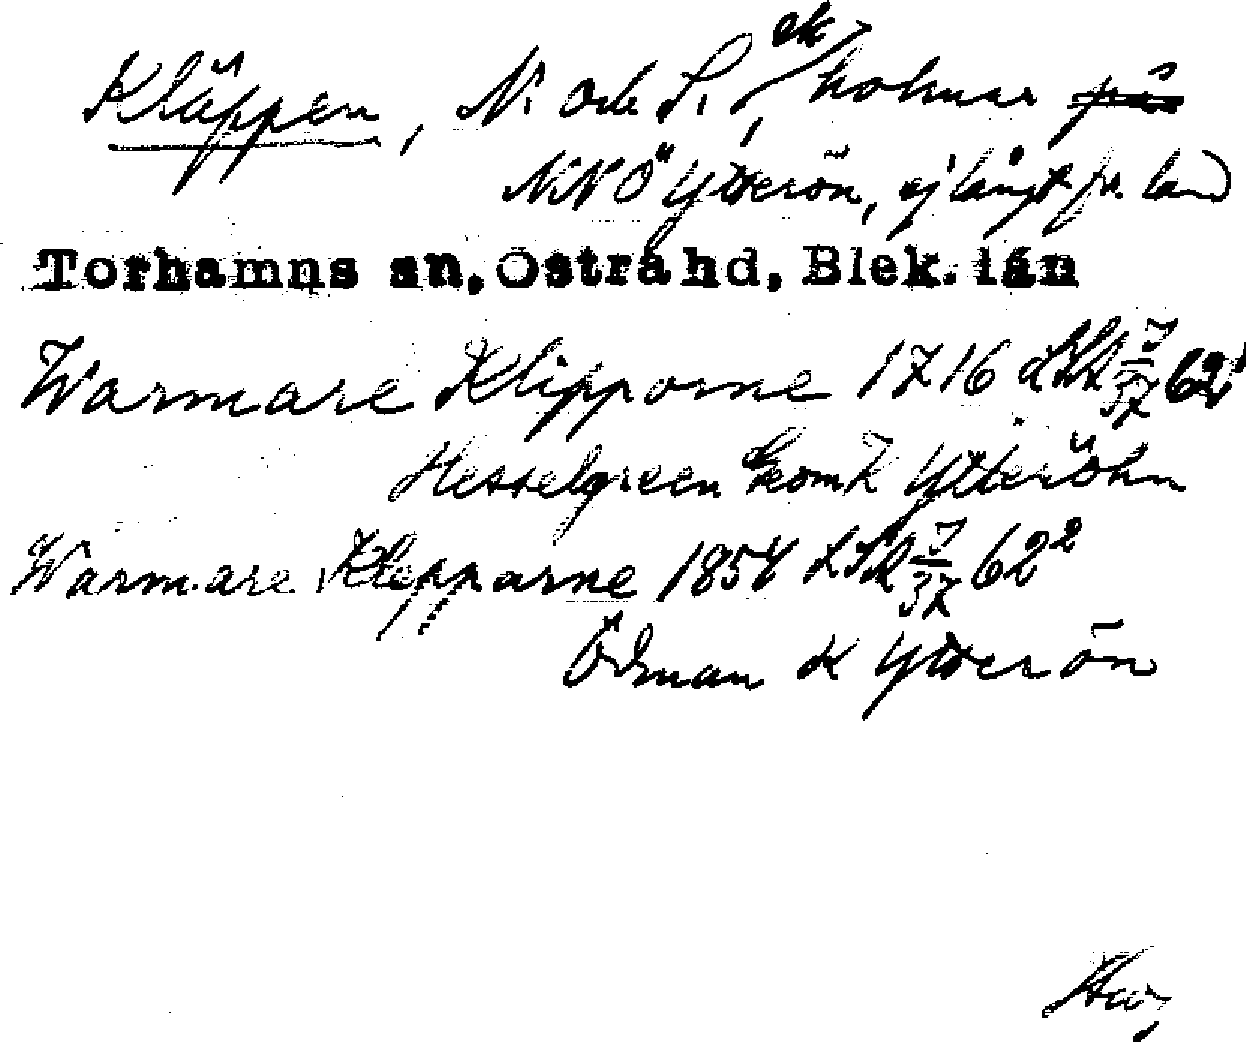 Kläppen, N. och S., ek holmar på
NNÖ Ytterön, ej långt fr. land
Torhamns sn, Östra hd, Blek. län
Warmare Klipporne 1716 LSA J/37 62¹
Hesselgreen Geom K Ytteröhn
Warmare Klepparne 1854 LSA J/37 62²
Ödman K Ytterön